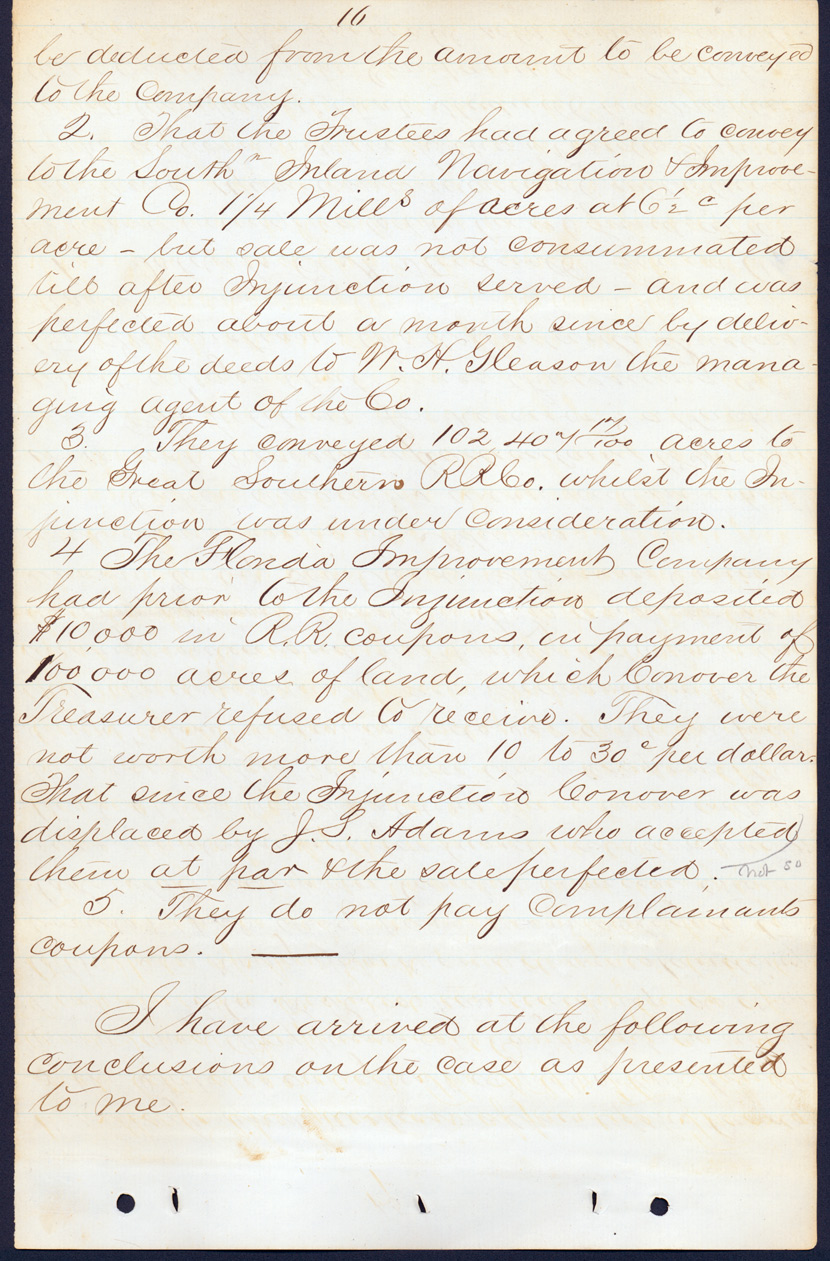 16
be deducted from the amount to be conveyed
to the Company.
2. That the Trustees had agreed to convey
to the South'n Inland Navigation & Improve-
ment Co. 1 1/4 Mills of acres at 6 1/2 c per
acre - but sale was not consummated
till after Injunction served - and was
perfected about a month since by deliv-
ery of the deeds to W. H. Gleason the mana-
ging agent of the Co.
3. They conveyed 102,407 17/100 acres to
the Great Southern R R Co. whilst the In-
junction was under consideration.
4 The Florida Improvement Company
had prior to the Injunction deposited
$10,000 in R.R. coupons, in payment of
100,000 acres of land, which Conover the
Treasurer refused to receive. They were
not worth more than 10 to 30 c per dollar.
That since the Injunction Conover was
displaced by J. S. Adams who accepted
them at par & the sale perfected. - not so
5. They do not pay Complainants
coupons. ——
I have arrived at the following
conclusions on the case as presented
to me.